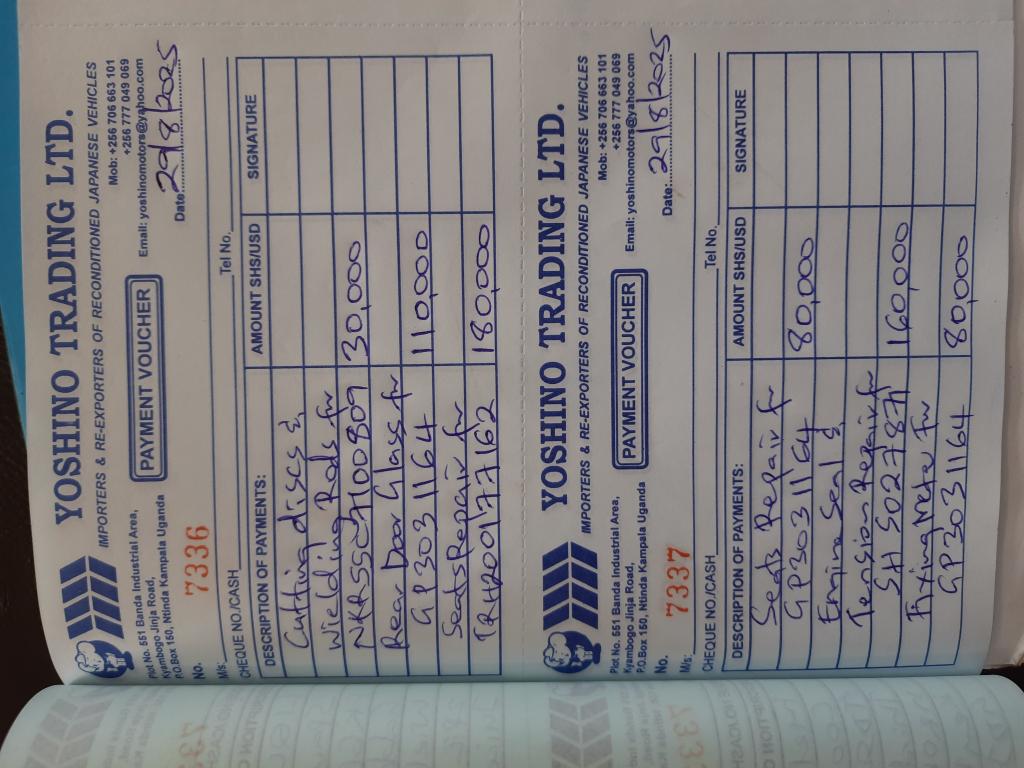 YOSHINO TRADING LTD.
IMPORTERS & RE-EXPORTERS OF RECONDITIONED JAPANESE VEHICLES
Plot No. 551 Banda Industrial Area,
Kyambogo Jinja Road,
P.O.Box 150, Ntinda Kampala Uganda
PAYMENT VOUCHER
Mob: +256 706 663 101
+256 777 049 069
Email: yoshinomotors@yahoo.com
No. 7336
Date: 29/8/2025
M/s:
CHEQUE NO./CASH Tel No.
DESCRIPTION OF PAYMENTS: AMOUNT SHS/USD SIGNATURE
Cutting discs &
Wielding Rods for
NKR55C7100809 30,000
Rear Door Glass for
GP3031164 110,000
Seats Repair for
TRH200177162 180,000
YOSHINO TRADING LTD.
IMPORTERS & RE-EXPORTERS OF RECONDITIONED JAPANESE VEHICLES
Plot No. 551 Banda Industrial Area,
Kyambogo Jinja Road,
P.O.Box 150, Ntinda Kampala Uganda
PAYMENT VOUCHER
Mob: +256 706 663 101
+256 777 049 069
Email: yoshinomotors@yahoo.com
No. 7337
Date: 29/8/2025
M/s:
CHEQUE NO./CASH Tel No.
DESCRIPTION OF PAYMENTS: AMOUNT SHS/USD SIGNATURE
Seats Repair for
GP3031164 80,000
Engine Seal &
Tension Repair for
SH5027871 160,000
Fixing Mete for
GP3031164 80,000